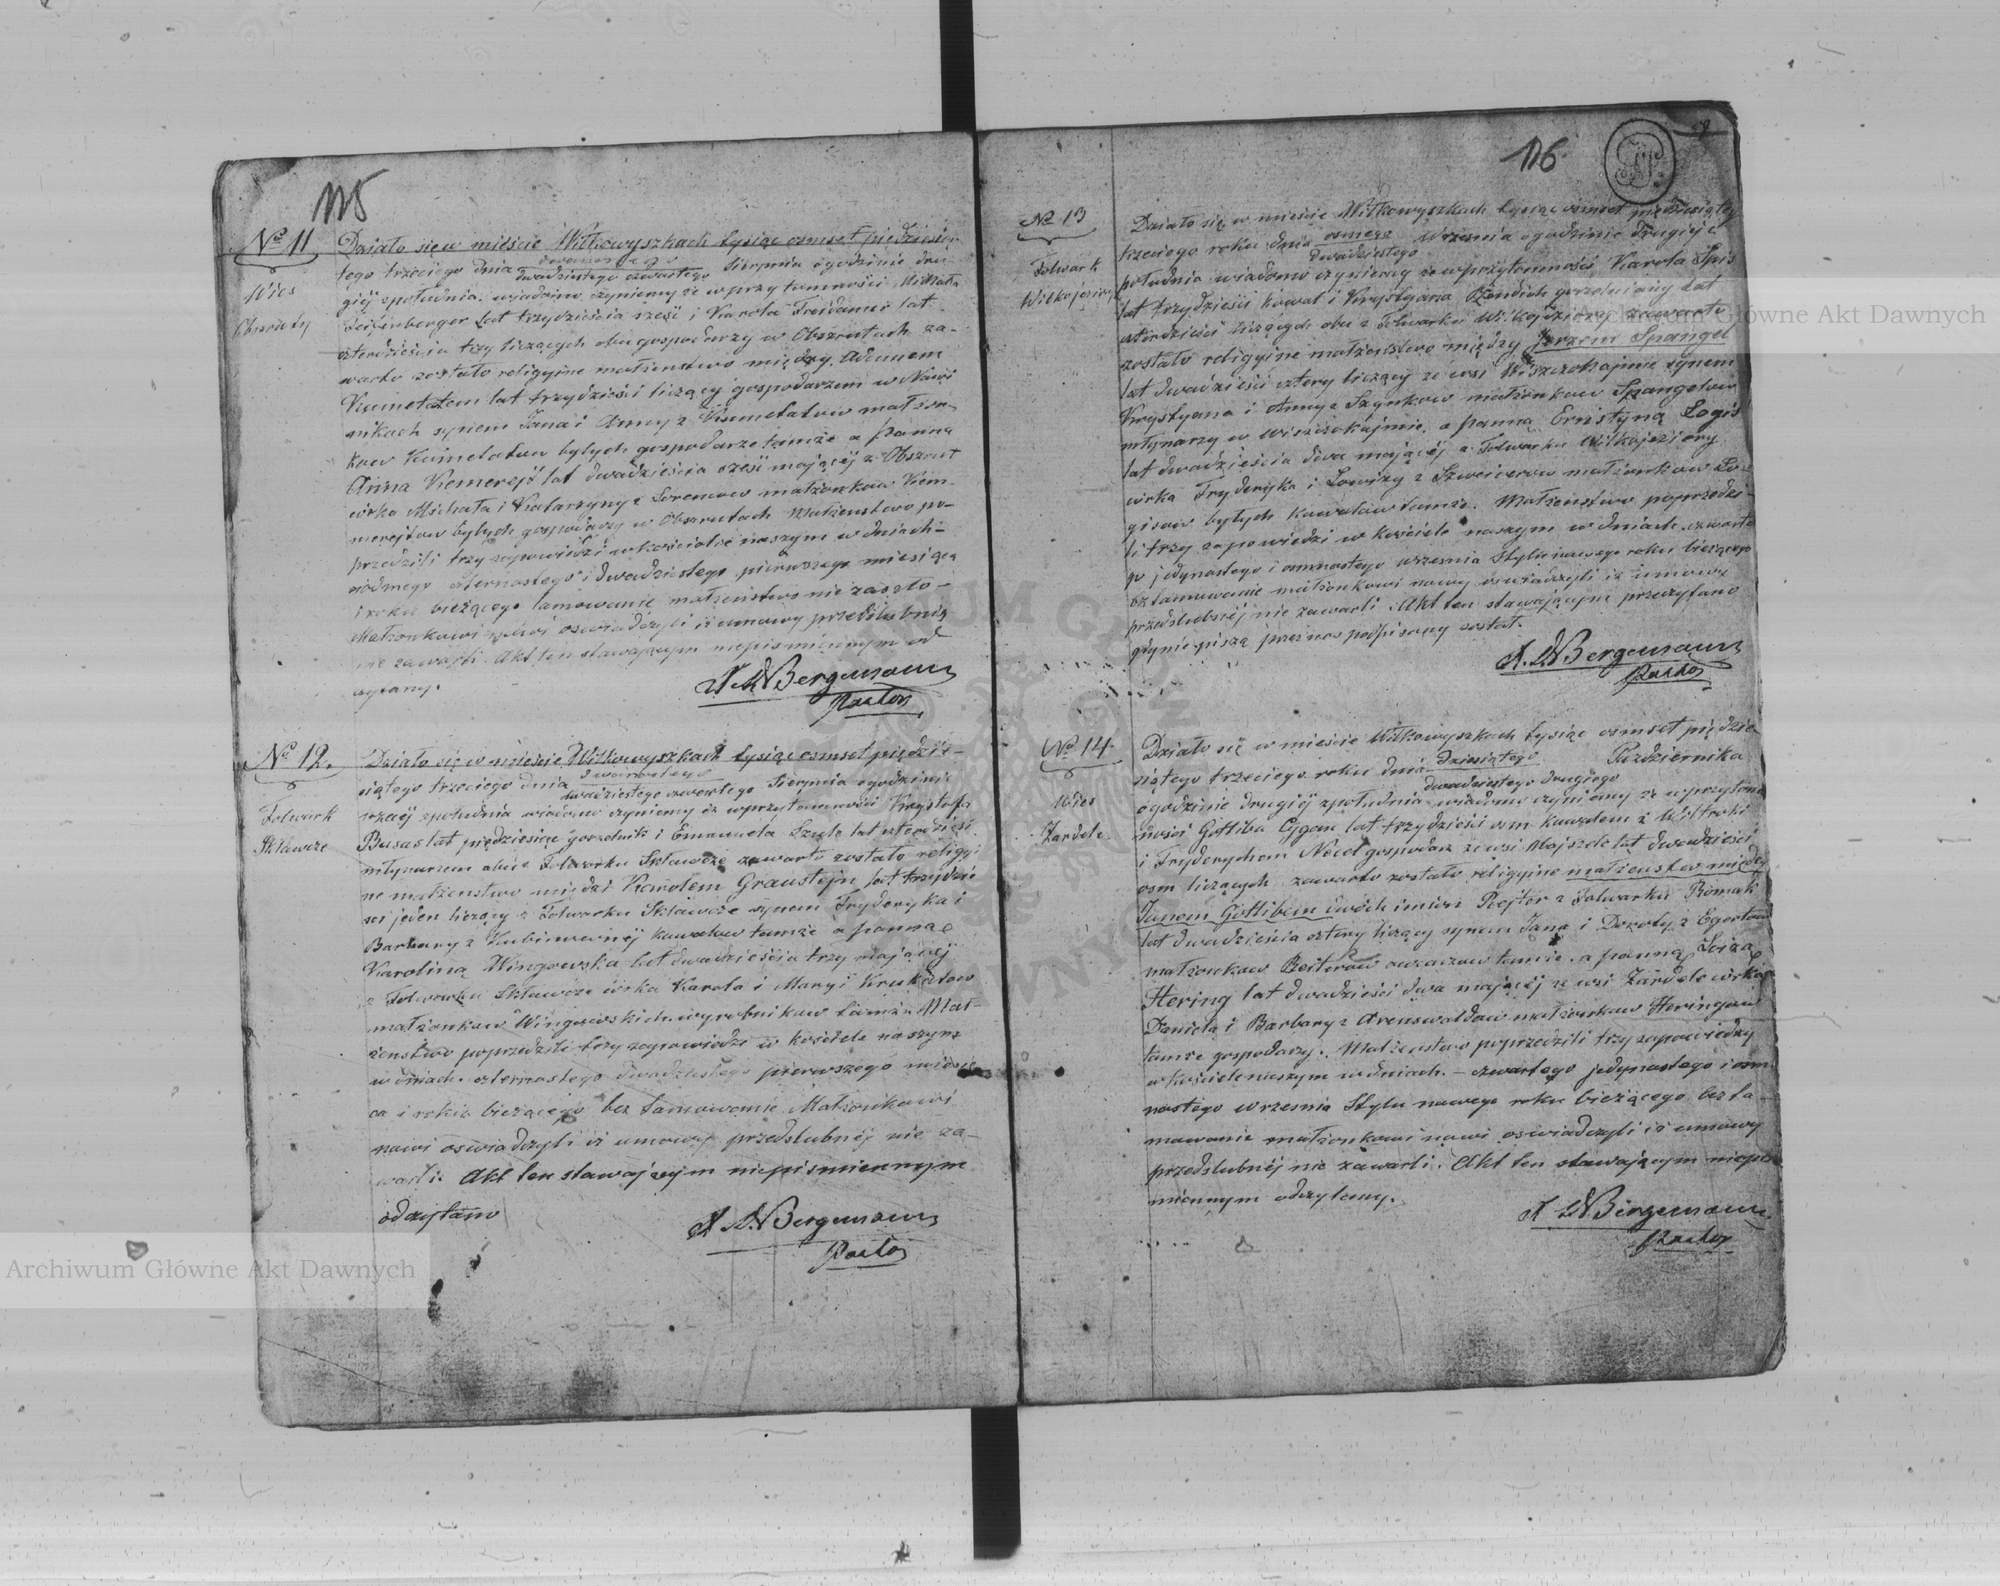 115
No 11
Wieś
Obszruty
Działo się w mieście Wiłkowyszkach tysiąc osmset piędziesią-
tego trzeciego dnia dwunastego
dwadziestego czwartego Sierpnia ogodzinie dru-
giej zpołudnia, wiadomo czyniemy że wprzytomności Michała
lat trzydzieścia sześć i Karola lat
czterdzieścia trzy liczących obu gospodarzy w Obszrutach za-
warto zostało religyine małżenstwo między Adamem
Kumetatem lat trzydzieści liczący gospodarzem w Nawi
nikach synem Jana i Anny z małżon-
kow Kumetatow byłych gospodarze tamże a Panną
Anna Kemerejt lat dwadzieścia sześć mającej z Obszrut
córka Michała i Katarzyny z małżonkow Kem-
merejtow byłych gospodarzy w Obszrutach Małżenstwo po-
przedzili trzy zapowiedzi wkościele naszym w dniach-
siódmego czternastego i dwadziestego pierwszego miesiąca
i roku bieżącego tamowanie małżeństwo nie zaszło-
Małżonkowi nowi oswiadczyli iż umowy przedślubnią
nie zawarli. Akt ten stawającym niepismiennym od
czytany.
Bergemann
Pastor
No 12.
Folwark
Skławcze
Działo się w mieście Wiłkowyszkach tysiąc osmset piędzie-
siątego trzeciego dnia dwunastego
dwadziestego czwartego Sierpnia ogodzinie
zpołudnia wiadomo czyniemy iż wprzytomności Krysztofa
Busas lat piędziesiąt gorzelnik i Emanuela Szulc lat czterdzieści
młynarzem obu z Folwarku Skławcze zawarto zostało religyi
ne małżenstwo miedzi Karolem Graustejn lat trzydzie
sci jeden liczący z Folwarku Skławcze synem Fryderyka i
Barbary z kawalow tamże a panną
Karolina Wingowska lat dwadzieścia trzy mającej
z Folwarku Skławcze córka Karola i Maryi Krukatow
małżonkow Wingowskich wyrobnikow tamże Mał-
żenstwo poprzedzili trzy zapowiedzi w kościele naszym
w dniach czternastego dwadziestego pierwszego miesią
ca i roku bieżącego bez tamowanie Małżonkowi
nowi oswiadczyli iż umowy przedślubnéj nie za-
warli. Akt ten stawającym niepismiennym
odczytano
Bergemann
Pastor
116
No 13
Folwark
Działo się w mieście Wiłkowyszkach tysiąc osmset piędziesiątego
trzeciego roku dnia osmego
dwadziestego Wrzesnia ogodzinie drugiej z
południa wiadomo czyniemy że wprzytomności Karola Spis
lat trzydzieści kowal i Krystyana gorzelniany lat
czterdzieści liczących obu z Folwarku zawarto
zostało religyine małżenstwo między Jerzem Spangel
lat dwadzieści cztery liczący ze wsi Wiszczokajmie synem
Krystyana i Anny z Szynkow małżonkow Spangelow
młynarzy w Wiszczokajmie, a panną Ernistyną Logis
lat dwadzieścia dwa mającej z Folwarku Wilkojeziory
córka Fryderyka i Lowizy z Szweicerow małżonkow Lo-
gisow byłych kawalow tamże. Małżenstwo poprzedzi-
li trzy zapowiedzi w kościele naszym w dniach czwarte
go jedynastego i osmnastego wrzesnia Stylu nowego roku bieżącego
bez tamowanie małżonkowi nowy oswiadczyli iż umowy
przedślubnéj nie zawarli. Akt ten stawającym przeczytano
gdy niepiszą przez nas podpisany został.
Bergemann
Pastor
No 14.
Wieś
Żardele
Działo się w mieście Wiłkowyszkach tysiąc osmset piędzie
siątego trzeciego roku dnia dziesiątego
dwadziestego drugiego Października
ogodzinie drugiej zpołudnia wiadomo czyniemy że wprzytom
ności Gotliba Cygan lat trzydzieści osm kawalem z
i Fryderychem gospodarz ze wsi lat dwadzieści
osm liczących zawarto zostało religyine małżenstwo między
Janem Gotlibem dwóch imion Rejter z Folwarku
lat dwadzieścia cztery liczący synem Jana i Doroty z Egertow
małżonkow Reiterow owczarzow tamże, a panną
Hering lat dwadzieści dwa mającéj ze wsi Żardele córka
Daniela i Barbary z Arenswaldow małżonkow Heringow
tamże gospodarzy. Małżenstwo poprzedzili trzy zapowiedzy
w kościele naszym w dniach.- czwartego jedynastego i osm
nastego wrzesnia Stylu nowego roku bieżącego bez ta-
mowanie małżonkowi nowi oswiadczyli iż umowy
przedślubnéj nie zawarli. Akt ten stawającym niepis
miennym odczytany.
Bergemann
Pastor
Archiwum Główne Akt Dawnych
Archiwum Główne Akt Dawnych